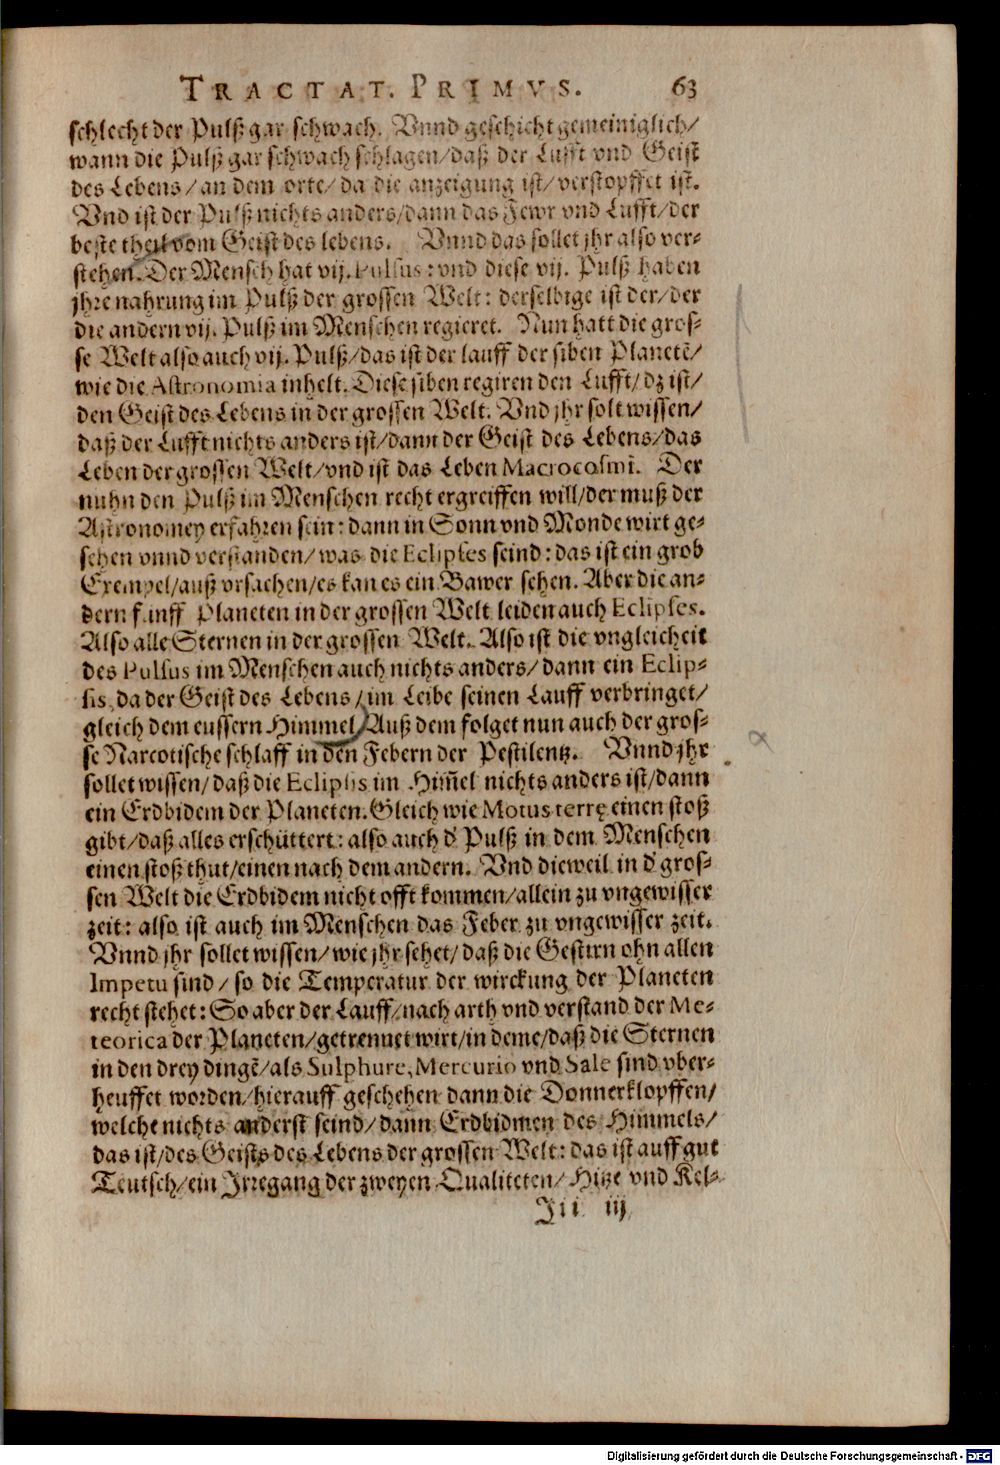 TRACTAT. PRIMVS. 63
schlecht der Pulß gar schwach. Vnnd geschicht gemeiniglich/
wann die Pulß gar schwach schlagen/daß der Lufft vnd Geist
des Lebens/an dem orte/da die anzeigung ist/verstopffet ist.
Vnd ist der Pulß nichts anders/dann das Fewr vnd Lufft/der
beste theil vom Geist des lebens. Vnnd das sollet jhr also ver-
stehen. Der Mensch hat vij. Pulsus: vnd diese vij. Pulß haben
jhre nahrung im Pulß der grossen Welt: derselbige ist der/der
die andern vij. Pulß im Menschen regieret. Nun hatt die gros-
se Welt also auch vij. Pulß/das ist der lauff der siben Planetē/
wie die Astronomia inhelt. Diese siben regiren den Lufft/dz ist/
den Geist des Lebens in der grossen Welt. Vnd jhr solt wissen/
daß der Lufft nichts anders ist/dann der Geist des Lebens/das
Leben der grossen Welt/vnd ist das Leben Macrocosmi. Der
nuhn den Pulß im Menschen recht ergreiffen will/der muß der
Astronomey erfahren sein: dann in Sonn vnd Monde wirt ge-
sehen vnnd verstanden/was die Eclipses seind: das ist ein grob
Exempel/auß vrsachen/es kan es ein Bawer sehen. Aber die an-
dern fünff Planeten in der grossen Welt leiden auch Eclipses.
Also alle Sternen in der grossen Welt. Also ist die vngleicheit
des Pulsus im Menschen auch nichts anders/dann ein Eclip-
sis, da der Geist des Lebens/im Leibe seinen Lauff verbringet/
gleich dem eussern Himmel. Auß dem folget nun auch der gros-
se Narcotische schlaff in den Febern der Pestilentz. Vnnd jhr
sollet wissen/daß die Eclipsis im Him̄el nichts anders ist/dann
ein Erdbidem der Planeten. Gleich wie Motus terrę einen stoß
gibt/daß alles erschüttert: also auch d' Pulß in dem Menschen
einen stoß thut/einen nach dem andern. Vnd dieweil in d' gros-
sen Welt die Erdbidem nicht offt kommen/allein zu vngewisser
zeit: also ist auch im Menschen das Feber zu vngewisser zeit.
Vnnd jhr sollet wissen/wie jhr sehet/daß die Gestirn ohn allen
Impetu sind/so die Temperatur der wirckung der Planeten
recht stehet: So aber der Lauff/nach arth vnd verstand der Me-
teorica der Planeten/getrennet wirt/in deme/daß die Sternen
in den drey dingē/als Sulphure, Mercurio vnd Sale sind vber-
heuffet worden/hierauff geschehen dann die Donnerklopffen/
welche nichts anderst seind/dann Erdbidmen des Himmels/
das ist/des Geists des Lebens der grossen Welt: das ist auff gut
Teutsch/ein Irregang der zweyen Qualiteten/Hitze vnd Kel-
Iii iij
Digitalisierung gefördert durch die Deutsche Forschungsgemeinschaft - DFG